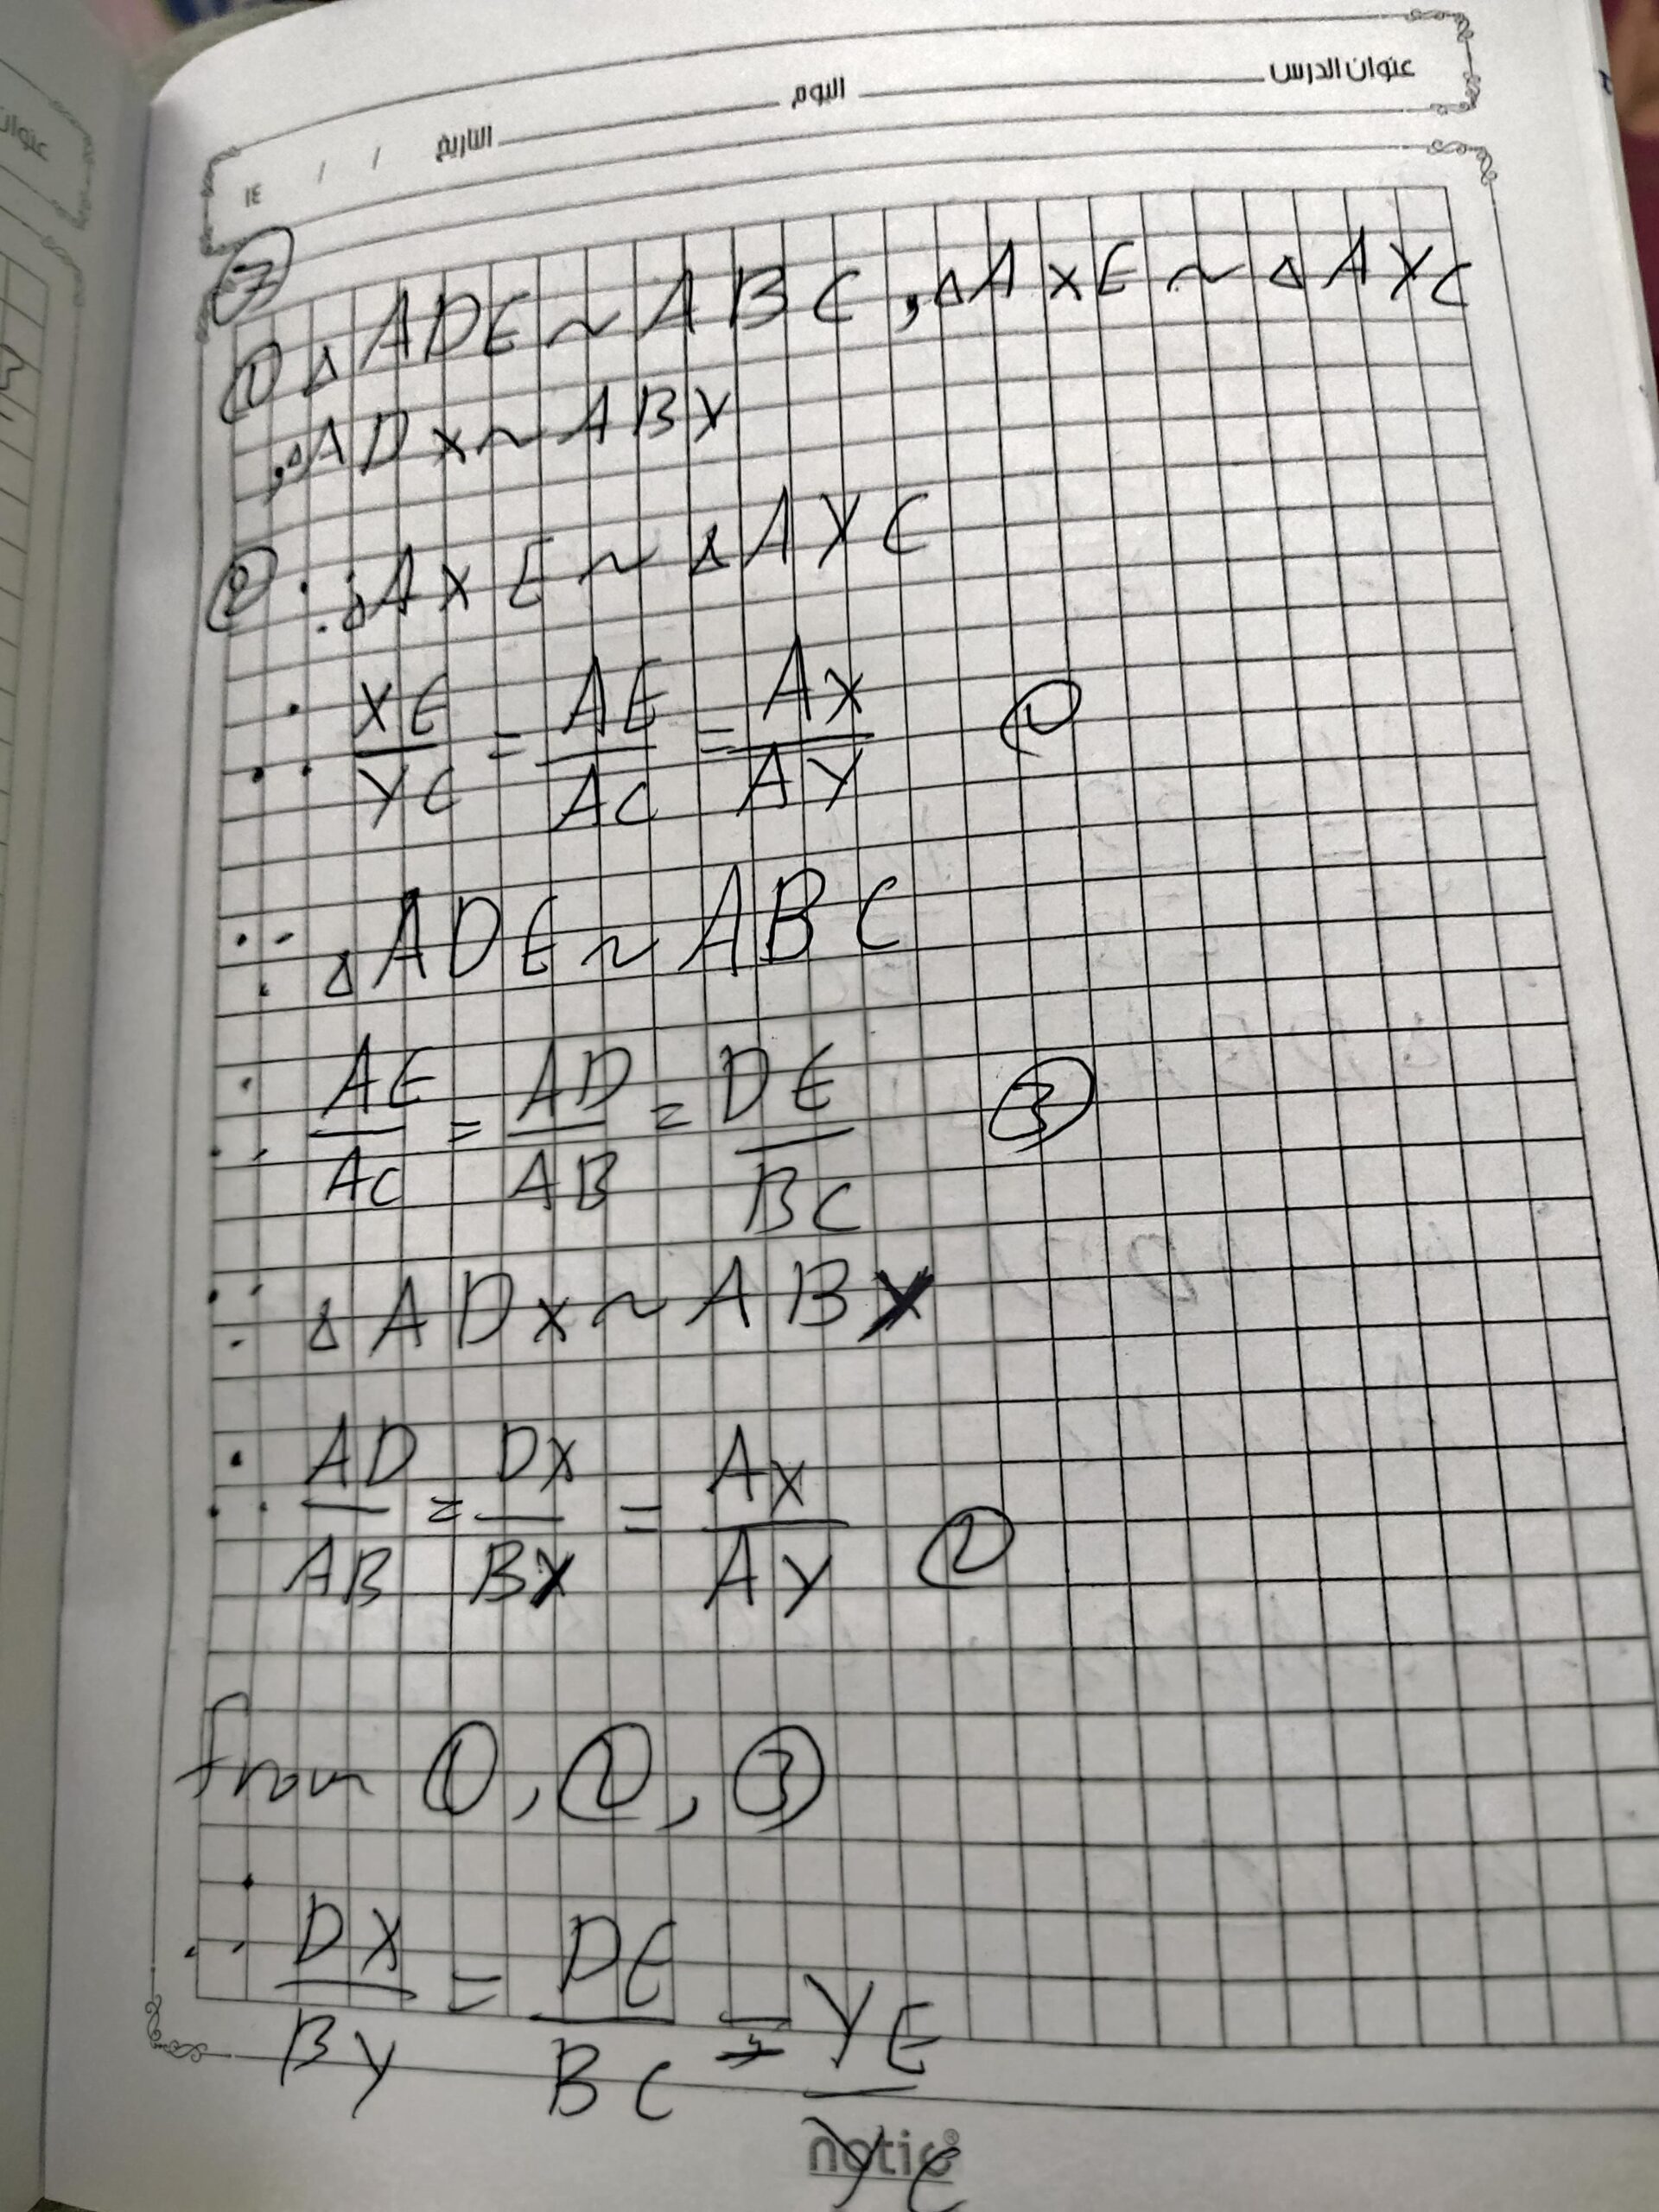 عنوان الدرس اليوم التاريخ / / ١٤
7
① △ADE ~ ABC , △AXE ~ △AYC
, △ADX ~ ABY
② ∵ △AXE ~ △AYC
∴ XE/YC = AE/AC = AX/AY ①
∵ △ADE ~ ABC
∴ AE/AC = AD/AB = DE/BC ③
∵ △ADX ~ ABY
∴ AD/AB = DX/BY = AX/AY ②
from ①, ②, ③
∴ DX/BY = DE/BC = YE/YC
notic